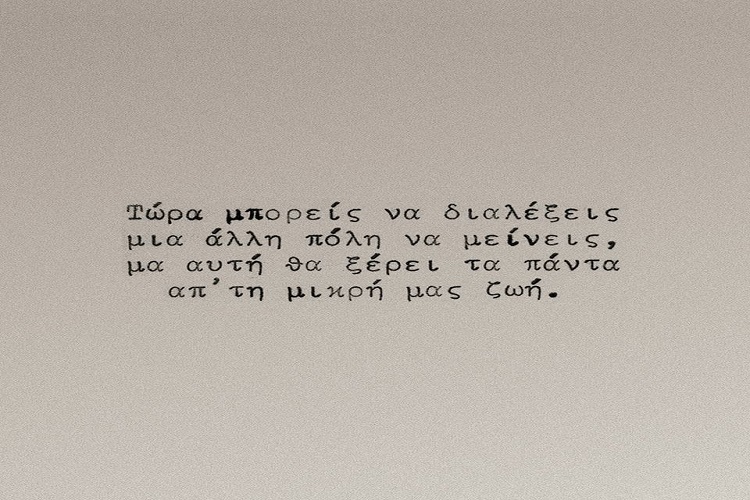 Τώρα μπορείς να διαλέξεις
μια άλλη πόλη να μείνεις,
μα αυτή θα ξέρει τα πάντα
απ'τη μικρή μας ζωή.